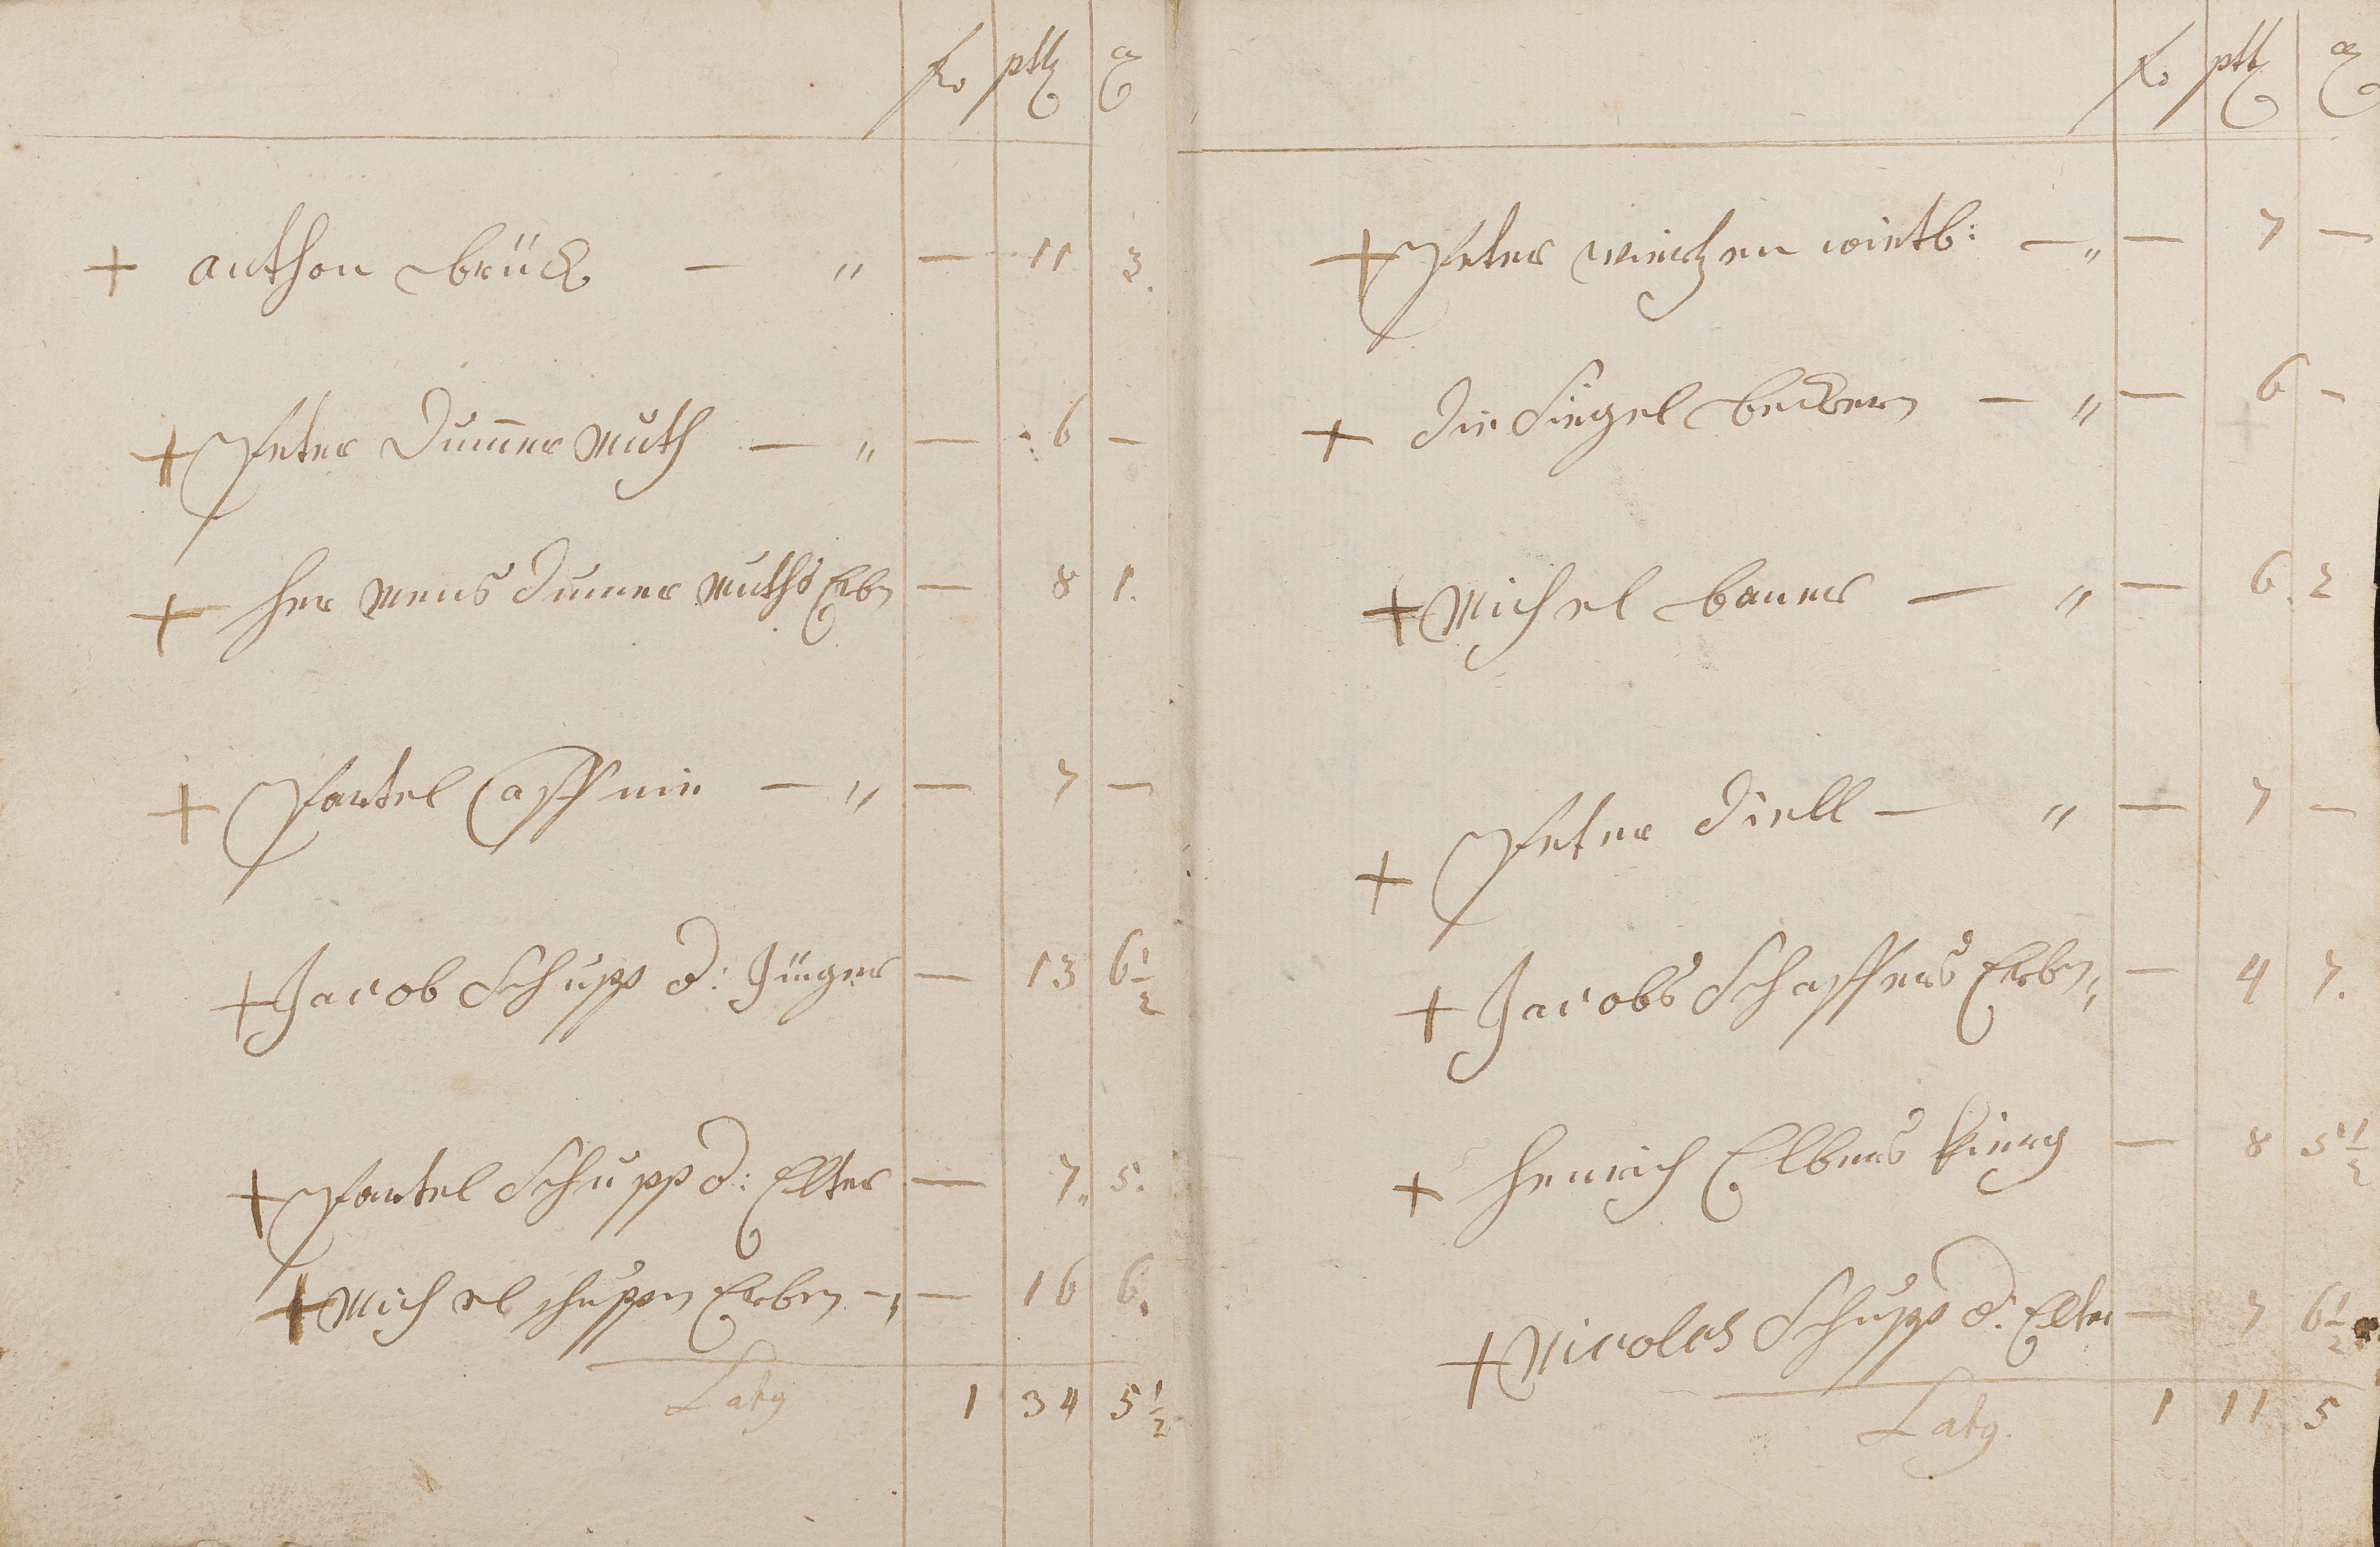 fl ptz ₰
+ anthon brück — " — 11 3.
+ Peter Dummer Muth — " — 6 —
+ Her mens Dummer Muths Erb — 8 1.
+ Pantel Casp — " — 7 —
+ Jacob Schupp d: Jünger — 13 6½
+ Pantel Schupp d: Elter — 7. 5.
+ Michel schuppen Erben — " — 16 6.
Latg 1 34 5½
fl ptz ₰
+ Peter wittb: — " — 7 —
+ Die Siegel beckern — " — 6 —
+ Michel bauer — " — 6. 2
+ Peter Diell — " — 7 —
+ Jacobs Schaffers Erben " — 4 7.
+ Henrich Elbens — 8 5½
+ Nicolas Schupp d: Elter — 7 6½
Latg. 1 11 5